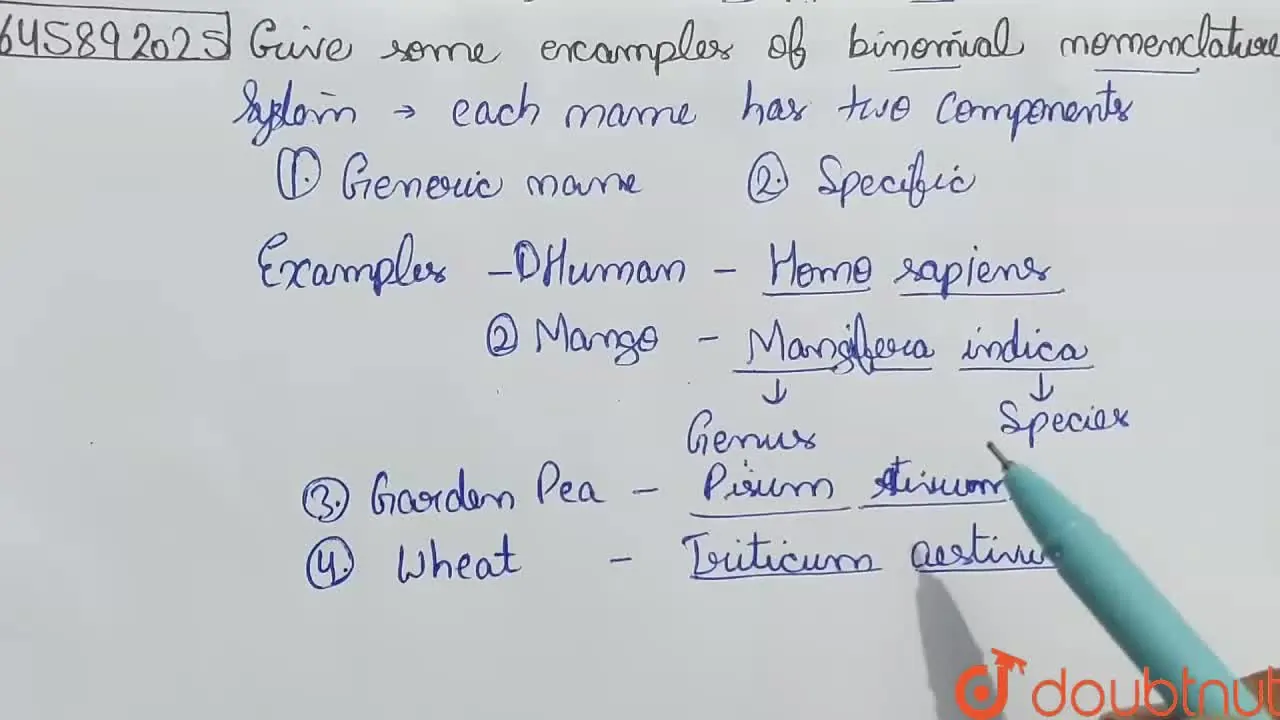 645892025 Give some examples of binomial nomenclature
System → each name has two components
①. Generic name ②. Specific
Examples - ① Human - Homo sapiens
② Mango - Mangifera indica
↓ ↓
Genus Species
③. Garden Pea - Pisum
④. Wheat - Triticum aestivu
doubtnut